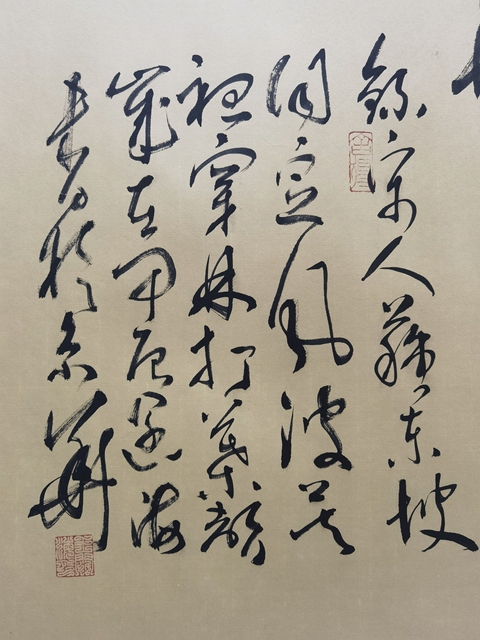 錄宋人蘇東坡
詞定風波莫
聽穿林打葉聲
歲在甲辰海
書於京華